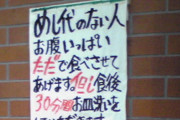 めし代のない人
お腹いっぱい
ただで食べさせて
あげます。但し食後
30分間お皿洗いを